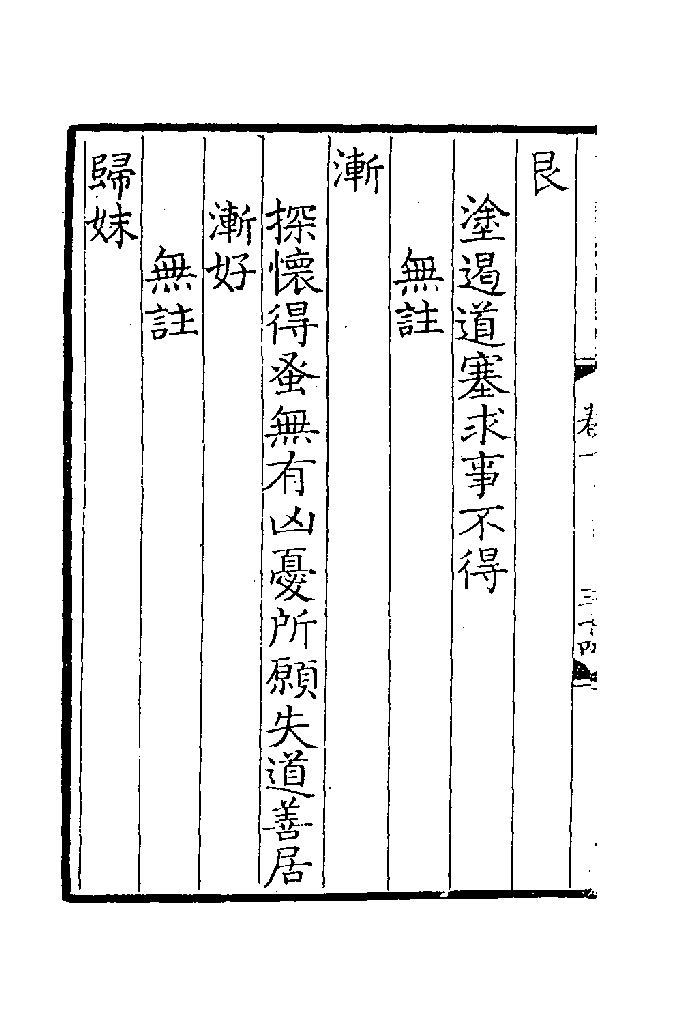 艮
塗遏道塞求事不得
無註
漸
探懷得蚤無有凶憂所願失道善居
漸好
無註
歸妹
三十四